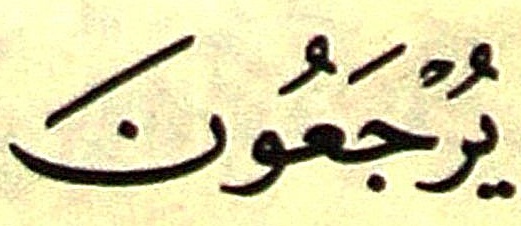 يُرْجَعُونَ